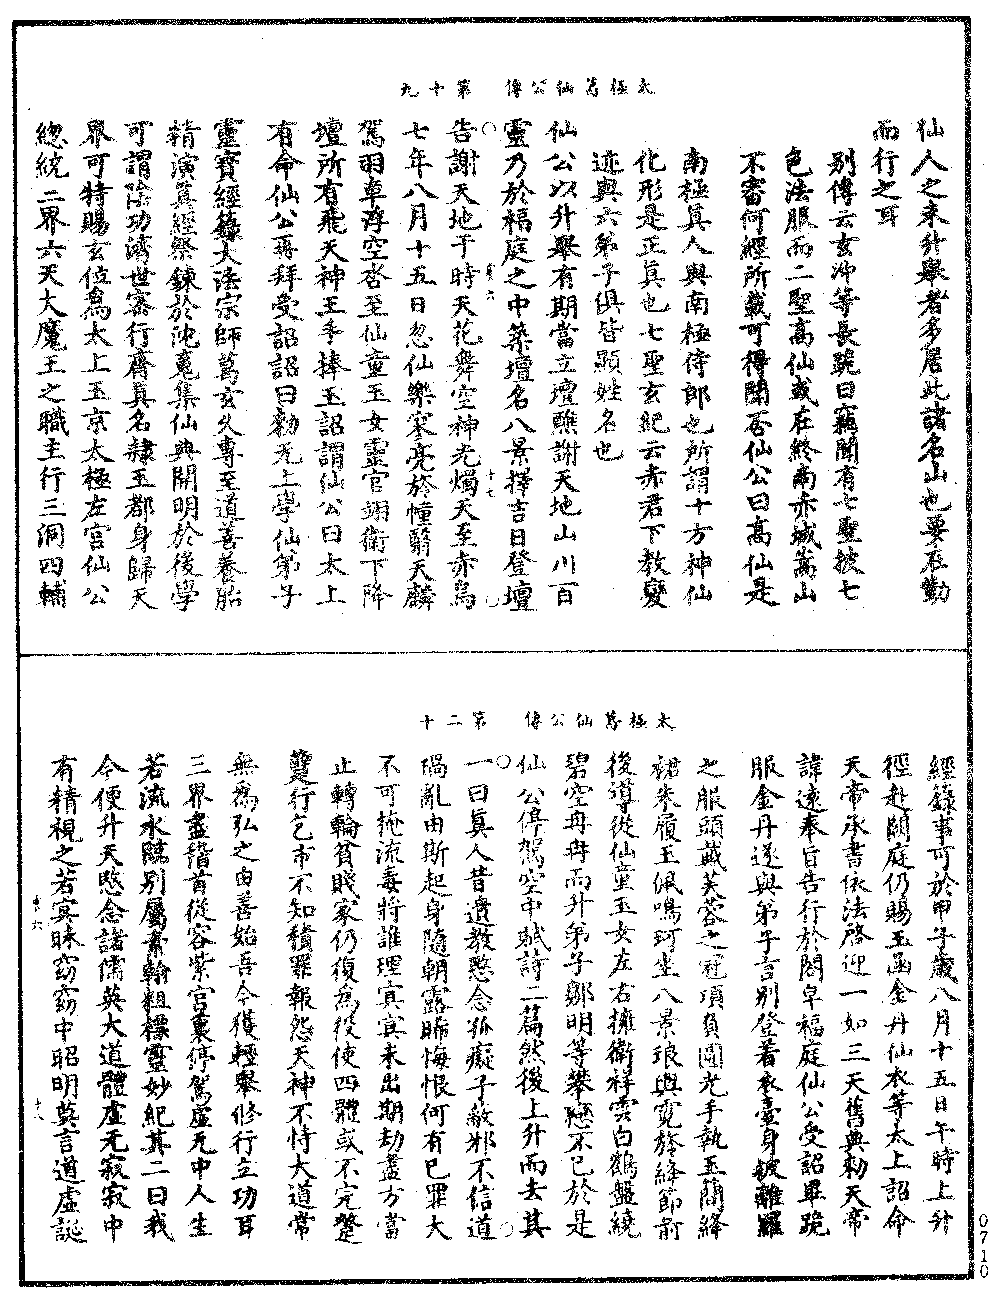 太極葛仙公傳　第十九
仙人之未升舉者多居此諸名山也要在勤
而行之耳
別傳云玄沖等長跪曰竊聞有七聖披七
色法服而二聖高仙或在終南赤城嵩山
不審何經所載可得聞否仙公曰高仙是
南極真人與南極侍郎也所謂十方神仙
化形是正真也七聖玄紀云赤君下教變
迹與六弟子俱皆顯姓名也
仙公以升舉有期當立壇醮謝天地山川百
靈乃於福庭之中築壇名八景擇吉日登壇
告謝天地于時天花舞空神光燭天至赤烏
七年八月十五日忽仙樂寥亮於幢翳天麟
駕羽車浮空沓至仙童玉女靈官翊衛下降
壇所有飛天神王手捧玉詔謂仙公曰太上
有命仙公再拜受詔詔曰勑无上學仙弟子
靈寶經籙大法宗師葛玄久專至道善養胎
精演真經祭鍊於沈魂集仙典開明於後學
可謂陰功濟世密行齊真名隸玉都身歸天
界可特賜玄位為太上玉京太極左宮仙公
總統二界六天大魔王之職主行三洞四輔
太極葛仙公傳　第二十
經籙事可於甲子歲八月十五日午時上升
徑赴闕庭仍賜玉函金丹仙衣等太上詔命
天帝承書依法啓迎一如三天舊典勑天帝
諱速奉旨告行於閤皁福庭仙公受詔畢跪
服金丹遂與弟子言別登著衣臺身披離羅
之服頭戴芙蓉之冠項負圓光手執玉簡絳
裙朱履玉佩鳴珂坐八景琅輿霓旌絳節前
後導從仙童玉女左右擁衛祥雲白鶴盤繞
碧空冉冉而升弟子鄒明等攀戀不已於是
仙公停駕空中賦詩二篇然後上升而去其
一曰真人昔遺教愍念孤癡子敵邪不信道
禍亂由斯起身隨朝露晞悔恨何有已罪大
不可掩流毒將誰理冥冥未出期劫盡方當
止轉輪貧賤家仍復為役使四體或不完蹩
躄行乞市不知積罪報怨天神不恃大道常
無為弘之由善始吾今獲輕舉修行立功耳
三界盡稽首從容紫宮裏停駕虛无中人生
若流水臨別屬素翰粗標靈妙紀其二曰我
今便升天愍念諸儒英大道體虛无寂寂中
有精視之若冥昧窈窈中昭明莫言道虛誕
虞六
十七
虞六
十八
0710